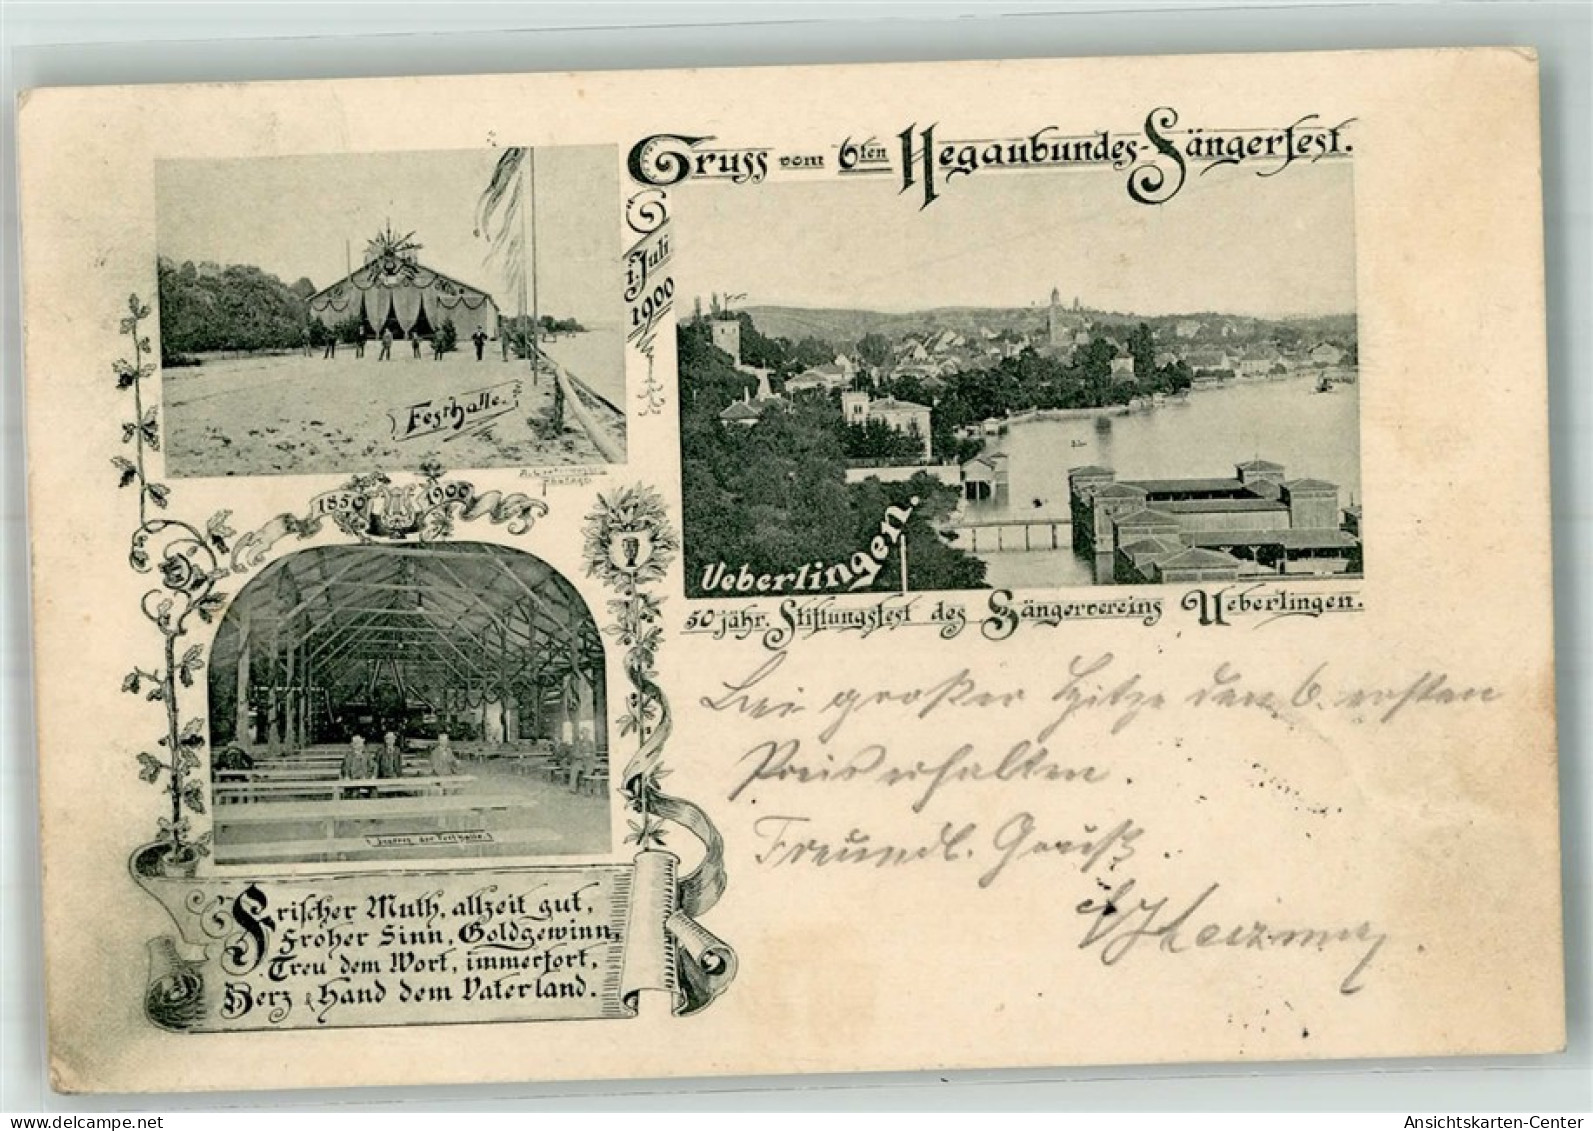 Gruss vom 6ten Hegaubundes-Sängerfest.
1. Juli
1900
Festhalle.
Photogr.
Ueberlingen.
50 jähr. Stiftungsfest des Sängervereins Ueberlingen.
1850 1900
Inneres der Festhalle.
Frischer Muth, allzeit gut,
Froher Sinn, Goldgewinn,
Treu dem Wort, immerfort,
Herz & Hand dem Vaterland.
Bei großer Hitze den 6. ersten
Preis erhalten.
Freundl. Gruß.
Ansichtskarten-Center